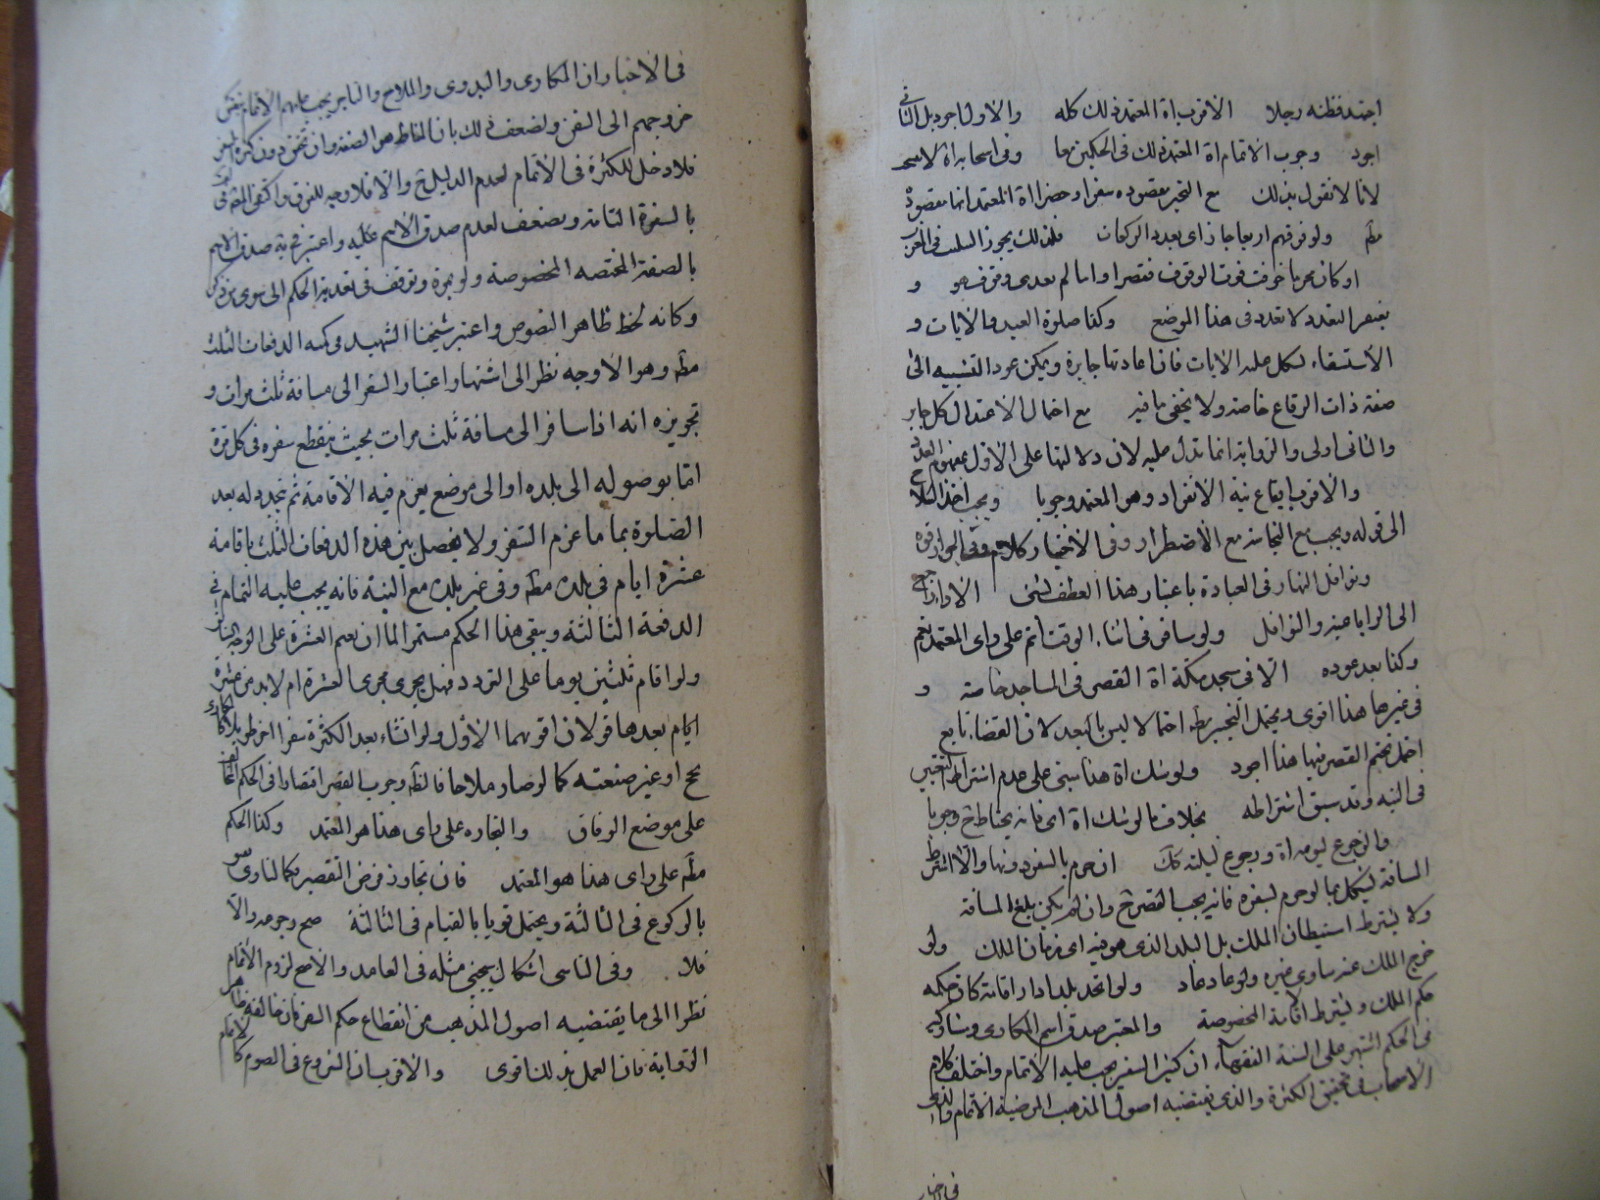 اجتد فظنه رجلا الاقرب اة المعتمد ذلك كله والاول اجود بل الثانى
اجود وجوب الاتمام اة المعتمد ذلك فى الحكمين معا وفى اسحابه اة لا سحد
لانا لا نقول بذلك مع التخير مقصوده سفرا وحضرا اة المعتمد انها مقصودة
مطه ولو فرقهم اربعا جاز اى بعدد الركعات فلذلك يجوز
او كان محرما خوفت فوت الوقوف فقصرا واما لم
التعدد لا تعدد فى هذا الموضع وكذا صلوة العيد والايات و
الاستسقاء لكل علم الايات فان اعادتها جايزة ويمكن عود التشبيه الى
صفة ذات الرقاع خاصة ولا يخفى ما فيه مع احتمال الاعتدال كل جابر
والثانى اولى والرواية انما تدل عليه لان دلالتها على الاول بمفهوم العدد
والاقرب ايقاع نية الانفراد وهو المعتمد وجوبا ويجب اخذ السلاح
الى قوله ويجب مع النجاسة مع الاضطرار وفى الاختيار كلام
ونوافل النهار فى العبادة باعتبار هذا العطف شئ الاداء
الى الرباعية والنوافل ولو سافر فى اثناء الوقت اتم على راى المعتمد نعم
وكذا بعد عوده الا فى مسجد مكة اة القصر فى المساجد خاصة و
فى غيرها هذا اقوى ويحتمل التخيير مطه احتمالا ليس بالبعد لان القضاء تابع
احتمل تحتم القصر فيها هذا اجود ولو شك اة هذا مبنى على عدم اشتراط التعيين
فى النية وقد سبق اشتراطه بخلاف ما لو شك اة اى فانه يحتاط ح وجوبا
والرجوع ليومه اة ورجوع ليلته كك ان حرم بالسفر دونها والا اشترط
المسافة لو حرم لسفره فانه يجب القصر ح وان لم يكن بلغ المسافة
ولا يشترط استيطان الملك بل البلد الذى هو فيه اى زمان الملك ولو
خرج الملك عنه ساوى غيره ولو عاد عاد ولو اتخذ بلدا دار اقامة كان حكمه
حكم الملك ويشترط الاقامة المخصوصة والمعتبر صدق اسم المكارى ومشاركيه
فى الحكم اشتهر على السنة الفقهاء ان كثير السفر يجب عليه الاتمام واختلف كلام
الاصحاب فى تحقيق الكثرة والذى يقتضيه اصول المذهب المرضية الاتمام والذى
فى الاخبار
فى الاخبار ان المكارى والبدوى والملاح والتاجر يجب عليهم الاتمام بنفس
خروجهم الى السفر ويضعف ذلك بان المناط هو الصنعة وان تحقق دون كثرة السفر
فلا دخل للكثرة فى الاتمام لعدم الدليل ح والا فلا وجه للفرق واكتفى المص فى
بالسفرة الثانية ويضعف لعدم صدق الاسم عليه واعتبر فى يه صدق الاسم
بالصفة المختصة المخصوصة ولو بمرة وتوقف فى تعدية الحكم الى سوى من ذكر
وكانه لحظ ظاهر النصوص واعتبر شيخنا الشهيد فى كتبه الدفعات الثلث
مطه وهو الاوجه نظرا الى اشتهار اعتبار السفر الى مسافة ثلث مرات و
تحريره انه اذا سافر الى مسافة ثلث مرات بحيث ينقطع سفره فى كل مرة
اما بوصوله الى بلده او الى موضع يعزم فيه الاقامة ثم يتجدد له بعد
الصلوة بماما عزم السفر ولا يفصل بين هذه الدفعات الثلث باقامة
عشرة ايام فى بلده مطه وفى غير بلده مع النية فانه يجب عليه التمام فى
الدفعة الثالثة ويبقى هذا الحكم مستمرا الى ان يقيم العشرة على الوجه السابق
ولو اقام ثلثين يوما على التردد فهل يجرى مجرى العشرة ام لا بد من عشرة
ايام بعدها قولان اقويهما الاول ولو انشاء بعد الكثرة سفرا اخر طويلا كالمكارى
يحج او غير صنعته كما لو صار ملاحا فالظ وجوب القصر اقتصارا فى الحكم المخالف
على موضع الوفاق والتجارة على راى هذا هو المعتمد وكذا الحكم
مطه على راى هذا هو المعتمد فان تجاوز فرض التقصير فكالناوى سو
بالركوع فى الثالثة ويحتمل قويا بالقيام فى الثالثة صح رجوعه والا
فلا وفى الناسى اشكال يجئ مثله فى العامد والاصح لزوم الاتمام
نظرا الى ما يقتضيه اصول المذهب من انقطاع حكم السفر فان خالفه ظاهر
الرواية فان العمل بذلك اقوى والاقرب ان الشروع فى الصوم كالاتمام